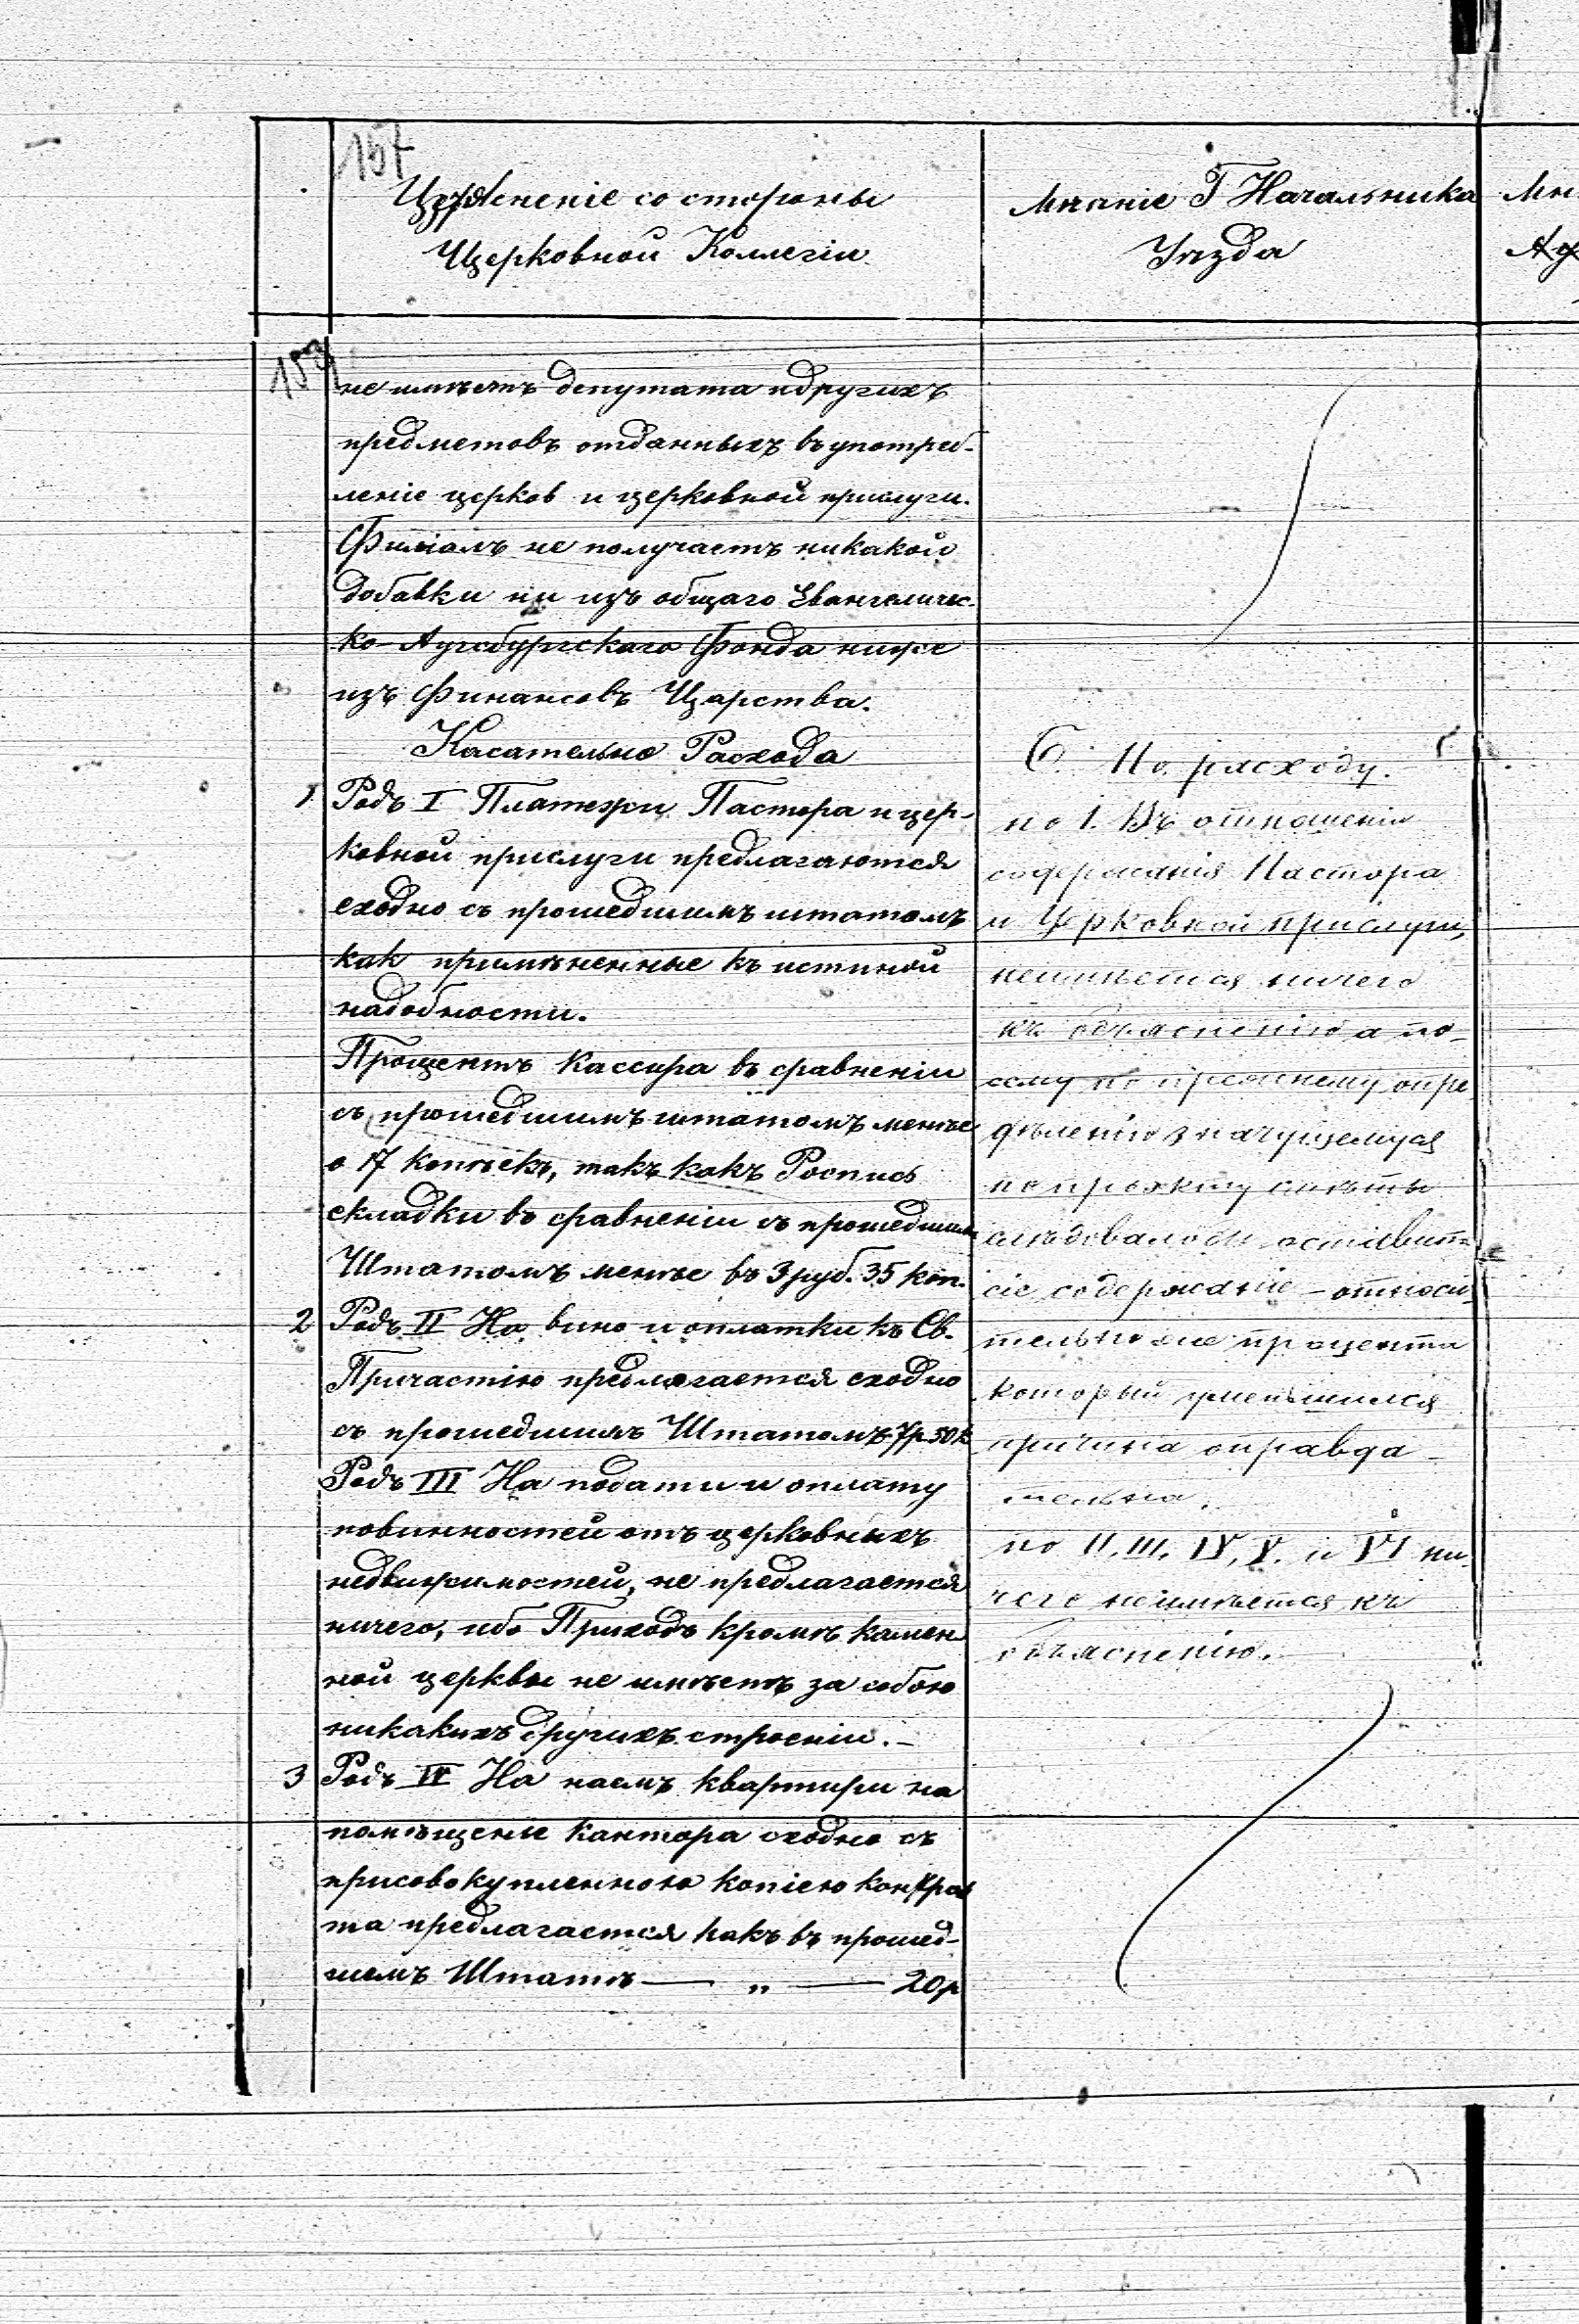 157
со стороны
Церковной Коллегіи
Мнѣніе Г Начальника
Уѣзда
Мн
не имѣетъ депутата и другихъ
предметовъ отданныхъ въ употреб-
леніе церков и церковной прислуги.
Филіалъ не получаетъ никакой
добавки ни изъ общаго Евангеличес-
ко-Аугсбургскаго Фонда ниже
изъ финансовъ Царства.
Касательно Расхода
1 Родъ I Платежи Пастора и цер-
ковной прислуги предлагаются
сходно съ прошедшимъ штатомъ
как примѣненные къ истиной
надобности.
Процентъ Кассира въ сравненіи
съ прошедшимъ штатомъ менѣе
о 17 копѣекъ, такъ какъ Роспись
складки въ сравненіи съ прошедшимъ
Штатомъ менѣе въ 3 руб. 35 коп.
2 Родъ II На вино и оплатки къ Св.
Причастію предлагается сходно
съ прошедшимъ Штатомъ 7р 50к
Родъ III На подати и оплату
повинностей отъ церковныхъ
недвижимостей, не предлагается
ничего, ибо Приходъ кромѣ камен
ной церквы не имѣетъ за собою
никакихъ другихъ строеніи.-
3 Родъ IV На наемъ квартири на
помѣщеніе кантора сходно съ
присовокупленною копіею контрак
та предлагается какъ въ прошед-
шемъ Штатѣ — „ — 20р
По расходу.
по I. Въ отношеніи
содержанія Пастора
и Церковной прислуги,
неимѣется ничего
къ объясненію а по-
сему по прежнему опре
дѣленію значущемуся
по проэкту смѣты
слѣдовалобы оставить
сіе содержаніе - относи
тельно же процента
который уменьшился
причина оправда-
тельна.
по II, III, IV, V. и VI ни-
чего неимѣется къ
объясненію.